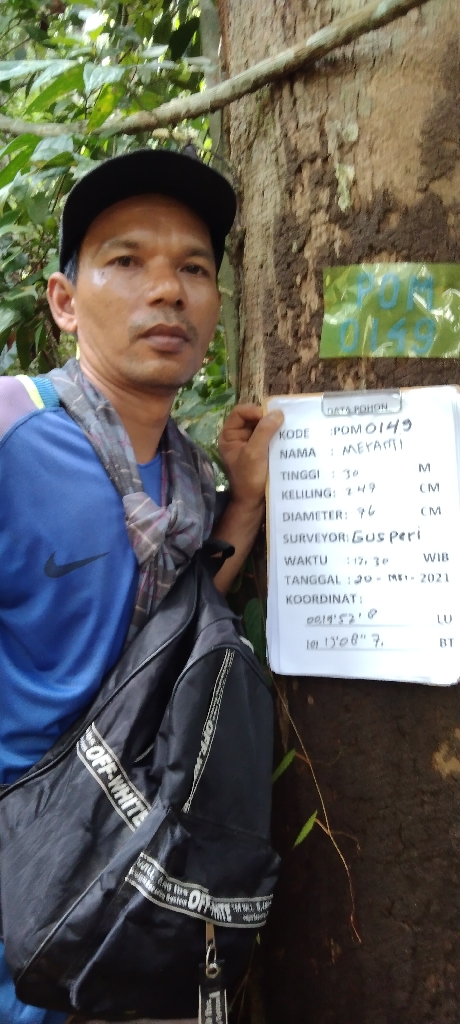 POM
0149
DATA POHON
KODE :POM0149
NAMA : MERANTI
TINGGI : 30 M
KELILING: 249 CM
DIAMETER: 76 CM
SURVEYOR: Gusperi
WAKTU : 12.30 WIB
TANGGAL : 20 - MEI - 2021
KOORDINAT:
LU
BT
OFF-WHITE
OFF-WHITE